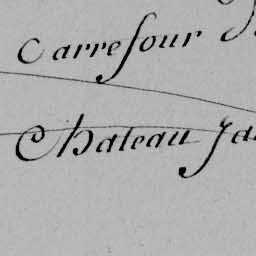 Carrefour
Chateau Ja